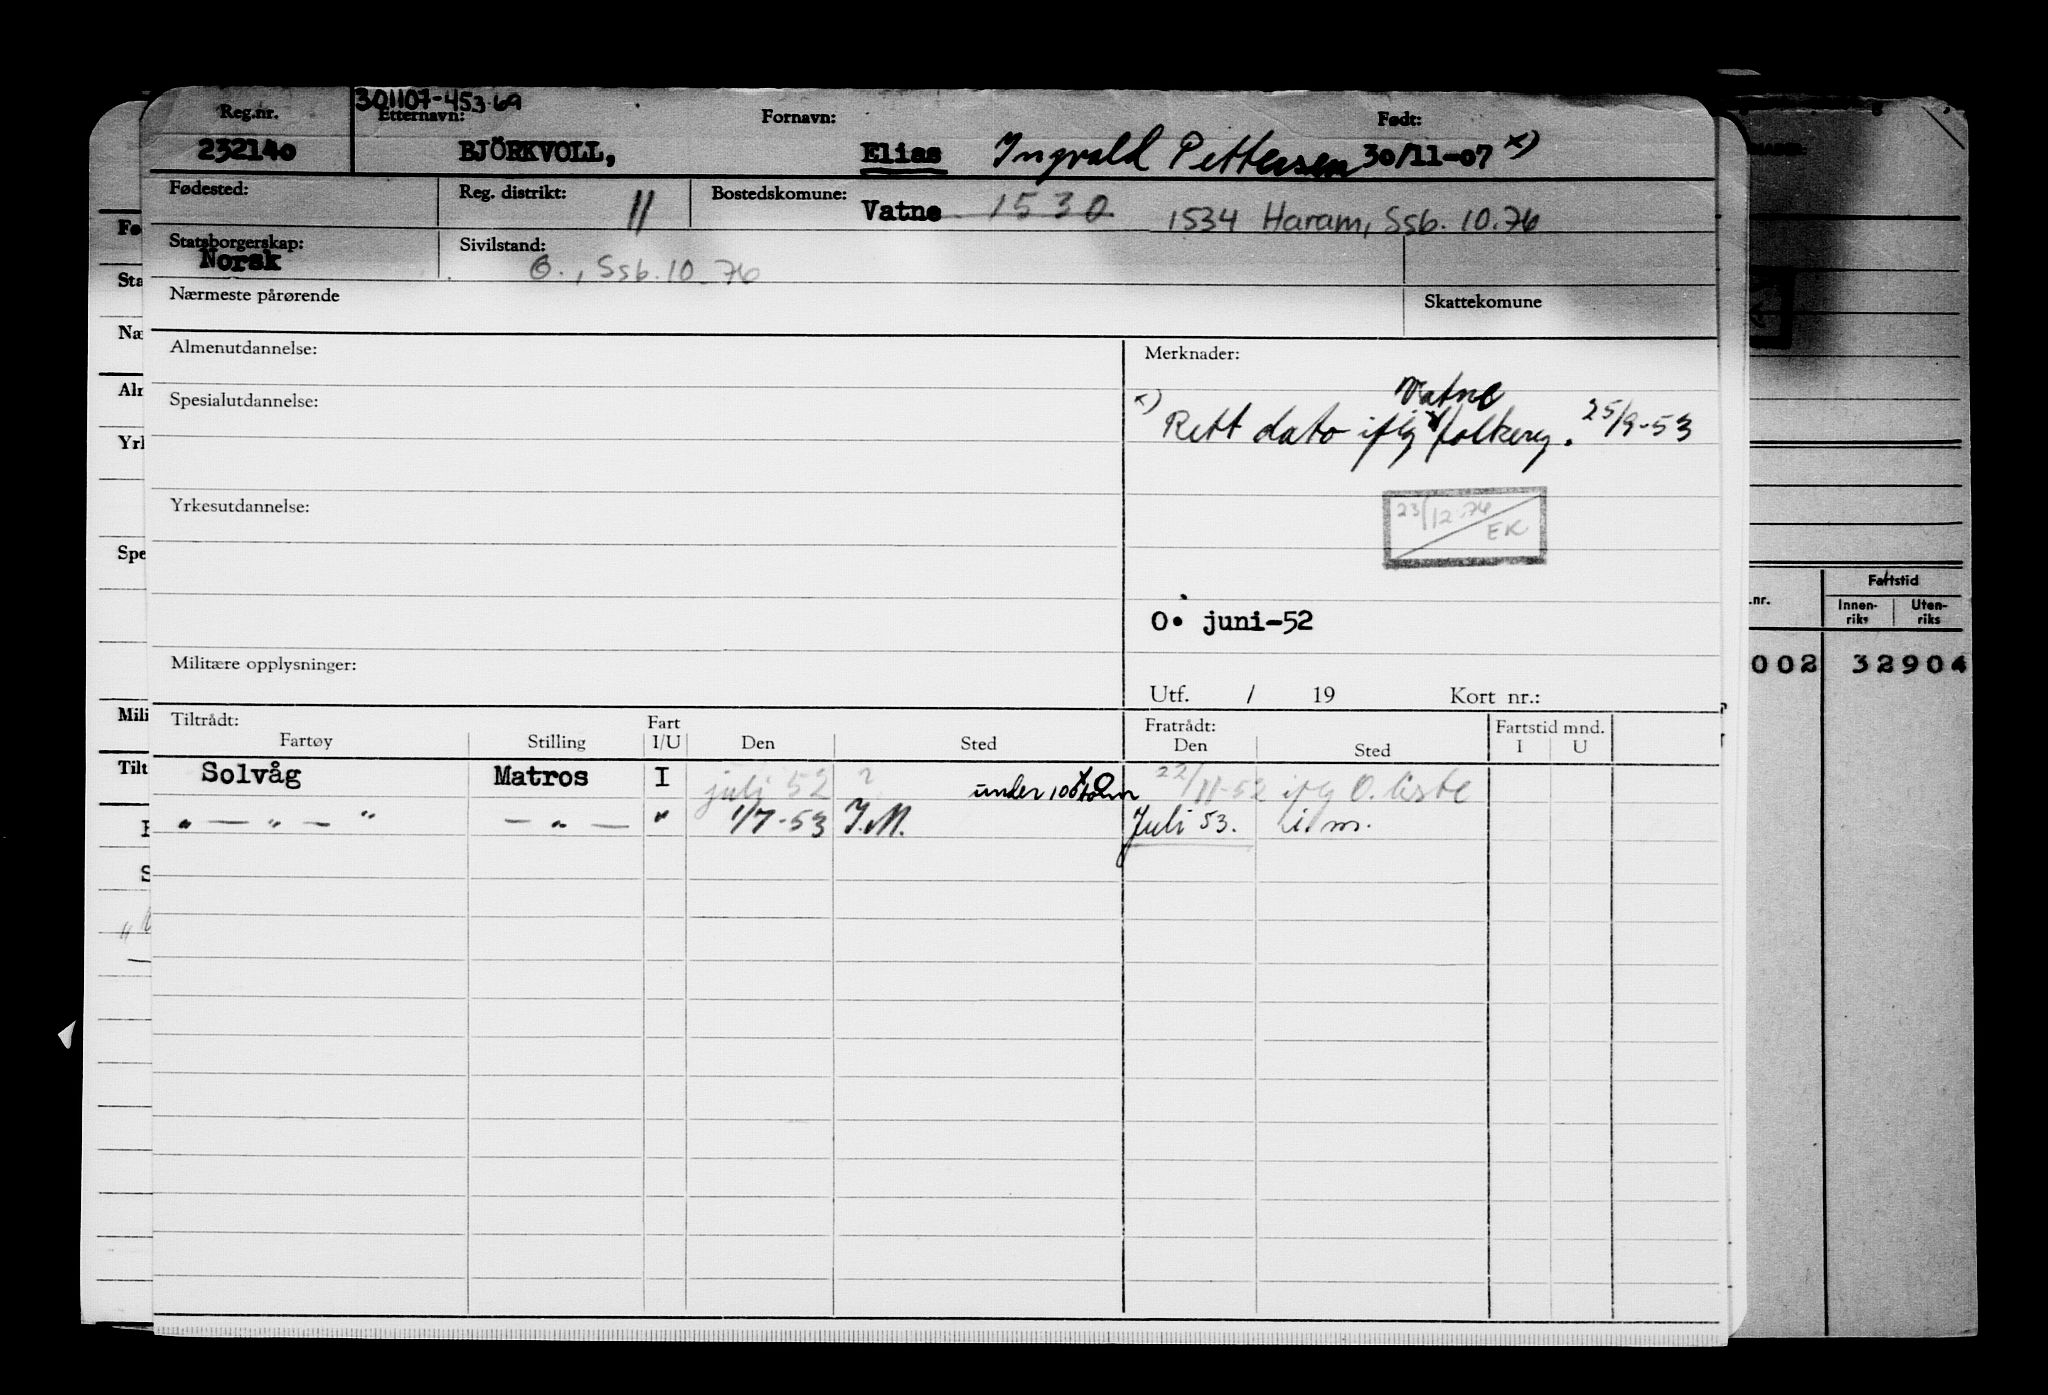 301107-453.69
Reg.nr. Etternavn: Fornavn: Født:
232140 BJÖRKVOLL, Elias Ingvald Pettersen 30/11-07 x)
Fødested: Reg. distrikt: 11 Bostedskomune: Vatne 1530 1534 Haram, Ssb. 10.76
Statsborgerskap: Norsk Sivilstand: G., Ssb. 10.76
Nærmeste pårørende Skattekomune
Almenutdannelse: Merknader:
Spesialutdannelse: x) Rett dato iflg Vatne folkereg. 25/9-53
Yrkesutdannelse: 23/12.76 EK
O. juni-52
Militære opplysninger:
Utf. / 19 Kort nr.:
Tiltrådt: Fratrådt: Fartstid mnd.
Fartøy Stilling Fart I/U Den Sted Den Sted I U
Solvåg Matros I juli 52 ? under 100 22/11-52 iflg O. liste
" — " — " — " — " 1/7-53 I.M. Juli 53. i.m.
Fø
Sta
Næ
Alr
Yrl
Spe
Mili
Tilt
.nr. Fartstid
Innen-riks Uten-riks
002 32904